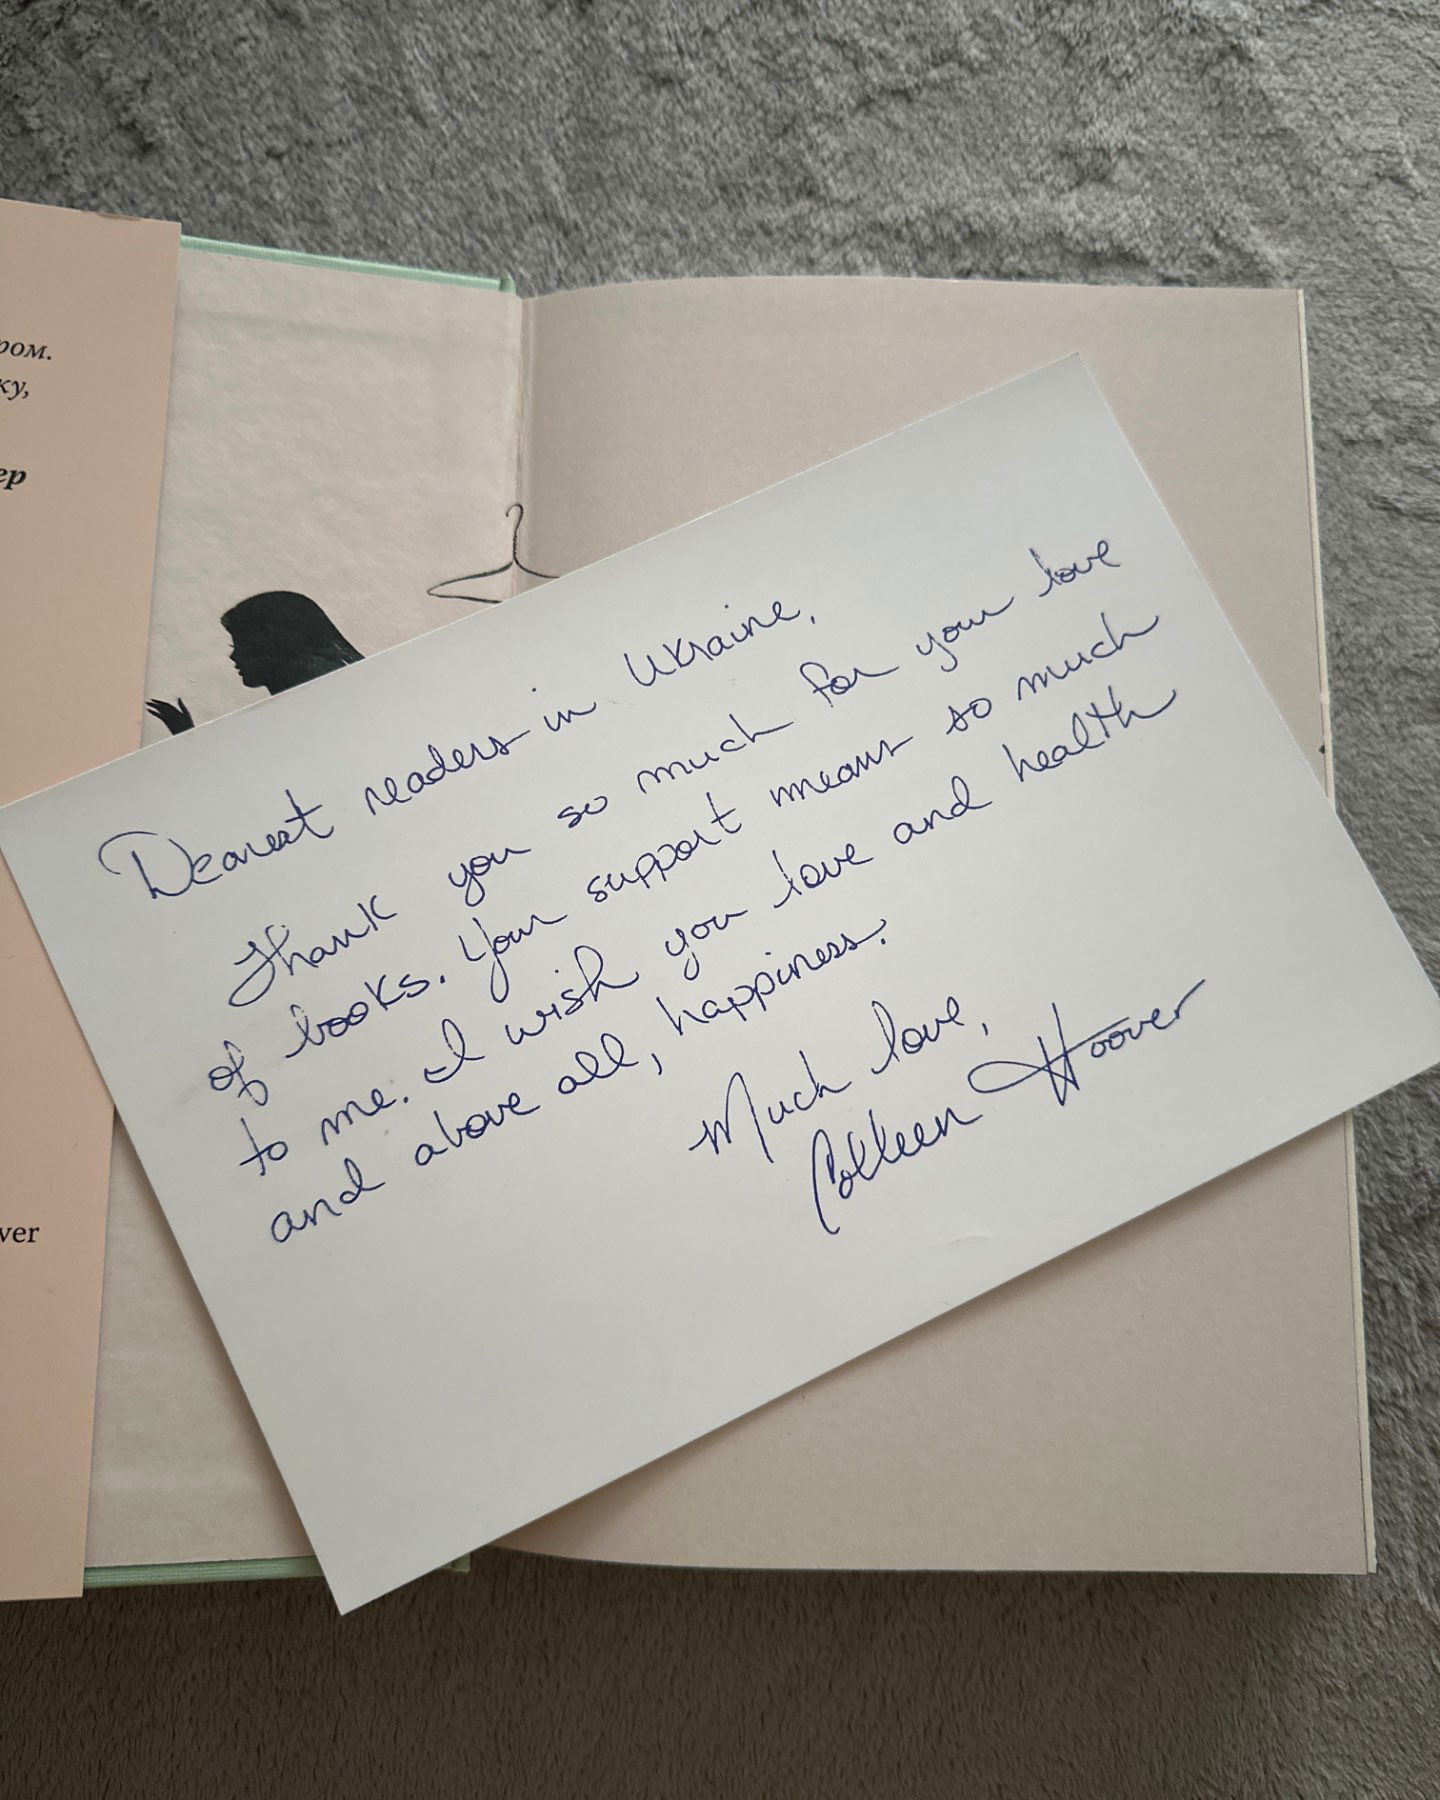 ром.
ку,
ер
ver
Dearest readers in Ukraine,
Thank you so much for your love
of books. Your support means so much
to me. I wish you love and health
and above all, happiness.
Much love,
Colleen Hoover